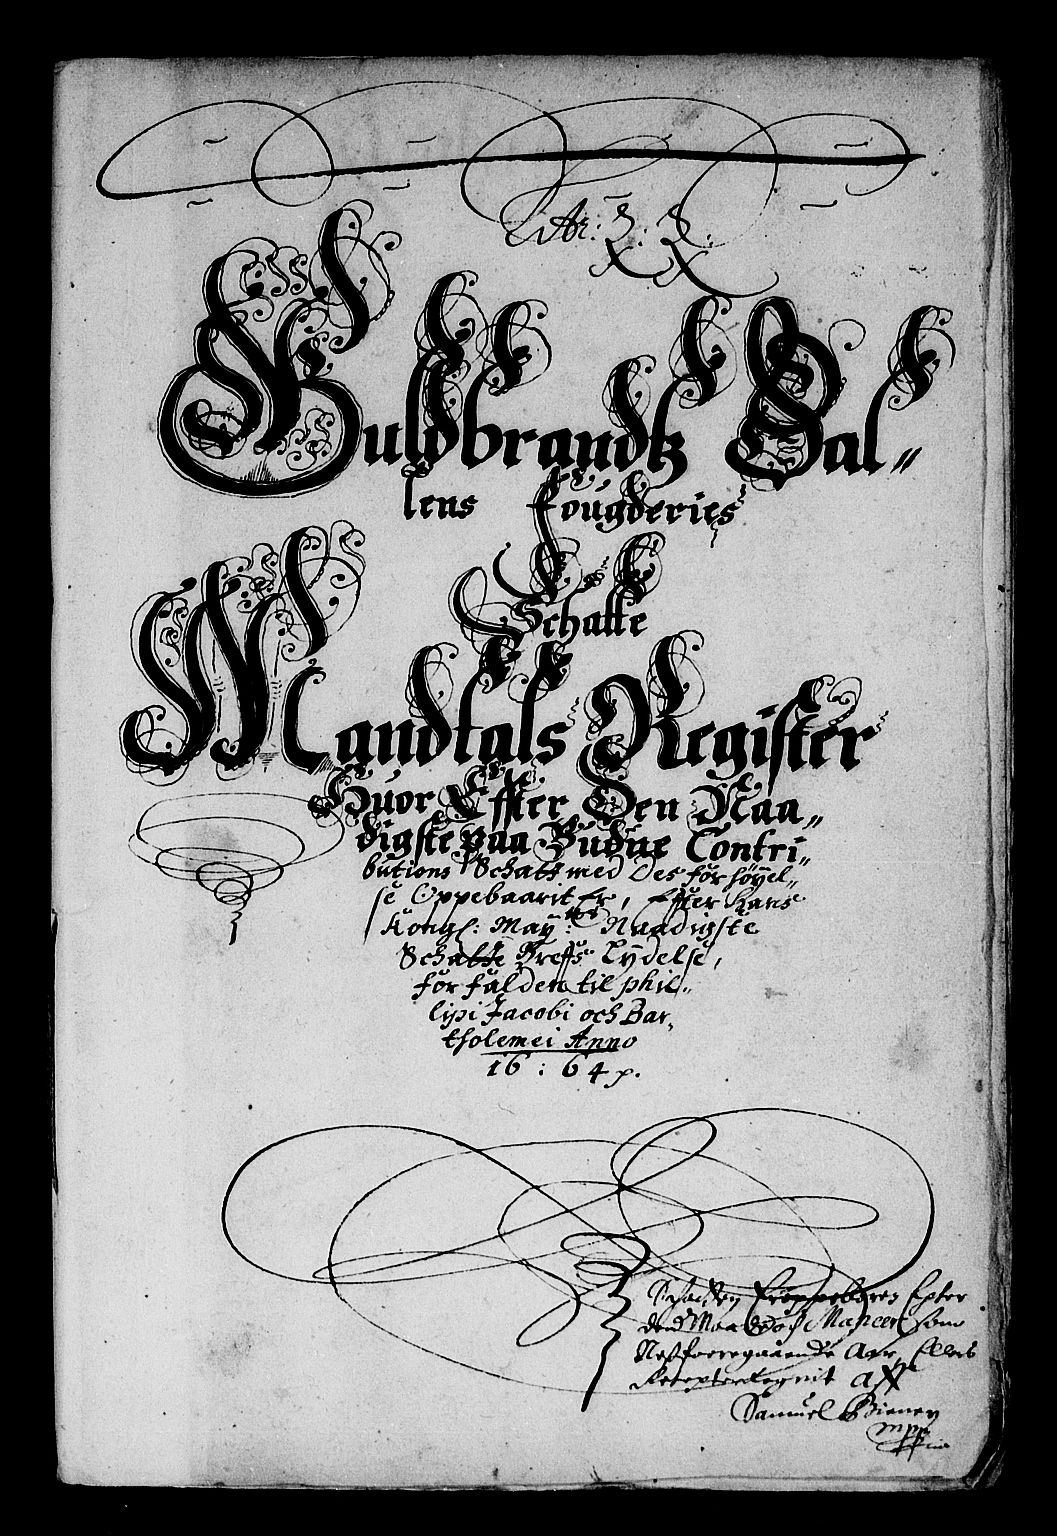 Guldbrandtz Dal„
lens fougderies
Schatte
Mandtals Register
Huor Effter Den Naa„
digste paa Budne Contri„
butions Schatt med Des forhøyel„
se Oppebaarit Er, Effter Hans
Kongl: May:tts Naadigste
Schatte Breffs Lydelse,
forfalden til phil„
lipi Jacobi och Bar„
tholemei Anno
16:64
Schatten
som
Aar
Samuel